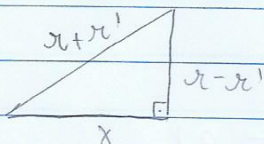 r+r'
r-r'
x